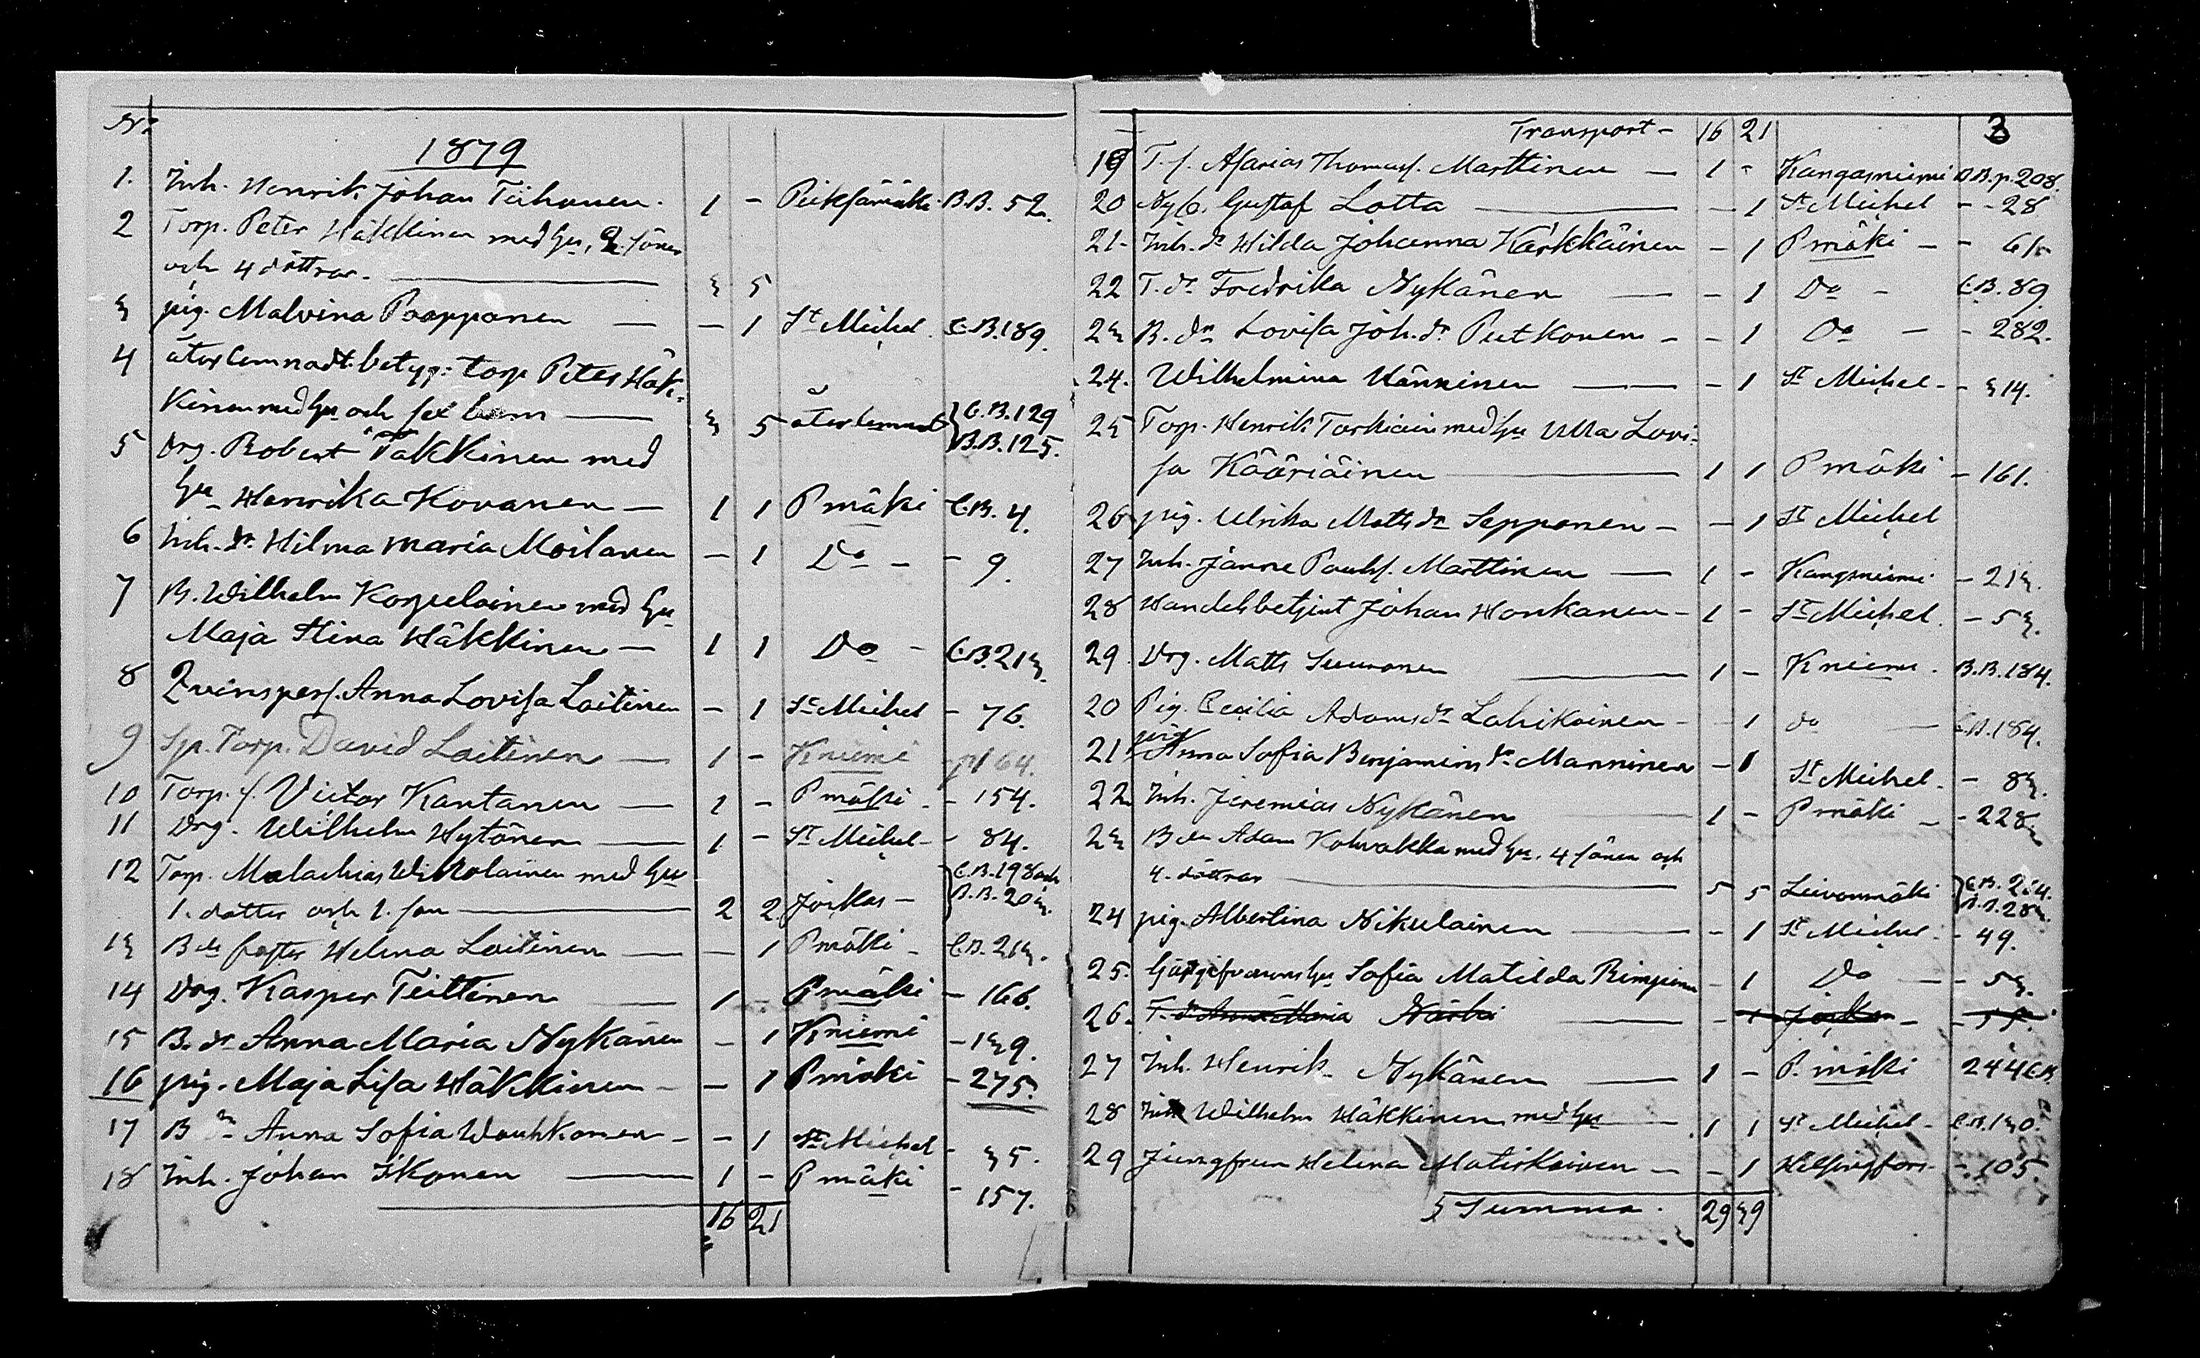 No
1879
1. Inh. Henrik Johan Tiihonen. 1 - Pieksämäki B.B. 52.
2 Torp. Peter Häkkinen med hu, 2 söner
och 4 döttrar. 3 5
3 pig. Malvina Paapponen — - 1 St Michel. C.B. 189.
4 återlemnadt betyg: torp Peter Häk-
kinen med hu och sex barn — 3 5 återlemnadt C.B. 129
B.B. 125.
5 Drg. Robert Takkinen med
hu Henrika Kovanen — 1 1 Pmäki C.B. 4.
6 Inh. dr Hilma Maria Moilanen — 1 Do - - 9.
7 B. Wilhelm Korpelainen med hu
Maja Stina Häkkinen — 1 1 Do - C.B. 213.
8 Qvinspers. Anna Lovisa Laitinen - 1 St Michel - 76.
9 Sp. Torp. David Laitinen — 1 - Kniemi p 164.
10 Torp. s. Victor Kantanen — 1 - Pmäki - - 154.
11 Drg. Wilhelm Hytönen — 1 - St Michel - - 84.
12 Torp. Malachias Wikolainen med hu
1. dotter och 1. son — 2 2 Joikas - C.B. 198 och
B.B. 203.
13 Bde syster Helena Laitinen — - 1 Pmäki - C.B. 213.
14 Drg. Kasper Teittinen — 1 - Pmäki - 166.
15 B. dr Anna Maria Nykänen - 1 Kniemi - 139.
16 pig. Maja Lisa Häkkinen - - 1 Pmäki - 275.
17 B dr Anna Sofia Wauhkonen - - 1 St Michel - 35.
18 Inh. Johan Ikonen — 1 - Pmäki - 157.
16 21
3
Transport - 16 21
19 T. s. Asarias Thomass. Marttinen — 1 - Kangasniemi B.B. p. 208.
20 Gustaf Lotta — - 1 St Michel - - 28
21. Inh. dr Hilda Johanna Kärkkäinen - 1 Pmäki - - 65
22 T. dr Fredrika Nykänen — - 1 Do - C.B. 89.
23 B. dr Lovisa Joh. dr Putkonen - - 1 Do - - 282.
24. Wilhelmina Hänninen — - 1 St Michel - - 314.
25 Torp. Henrik Tarkiain med hu Ulla Lovi-
sa Kääriäinen — 1 1 Pmäki - 161.
26 pig. Ulrika Matts dr Sepponen - - 1 St Michel
27 Inh. Janne Paulss. Marttinen — 1 - Kangsniemi - 213.
28 Handelsbetjent Johan Honkanen - 1 - St Michel. - 53.
29. Drg. Matts Suuronen — 1 - Kniemi. B.B. 184.
20 Pig. Cecilia Adams dr Lahikainen - - 1 do — C.B. 184.
21. pig Anna Sofia Benjamins dr Manninen - 1 St Michel. - 83.
22. Inh. Jeremias Nykänen — 1 - Pmäki - - 228
23 Bde Adam Kohvakka med hu, 4 söner och
4. döttrar — 5 5 Leivonmäki C.B. 284.
24 pig. Albertina Nikulainen — - 1 St Michel - 49.
25. Sofia Matilda Rimpinen - 1 Do - - 53.
26. T. dr Anna Maria - 1
27 Inh. Henrik Nykänen — 1 - P.mäki 244 C.B.
28 Inh Wilhelm Häkkinen med hu — 1 1 St Michel - C.B. 130.
29 Jungfrun Helena Matirkainen — - 1 Helsingfors - 105.
Summa. 29 39